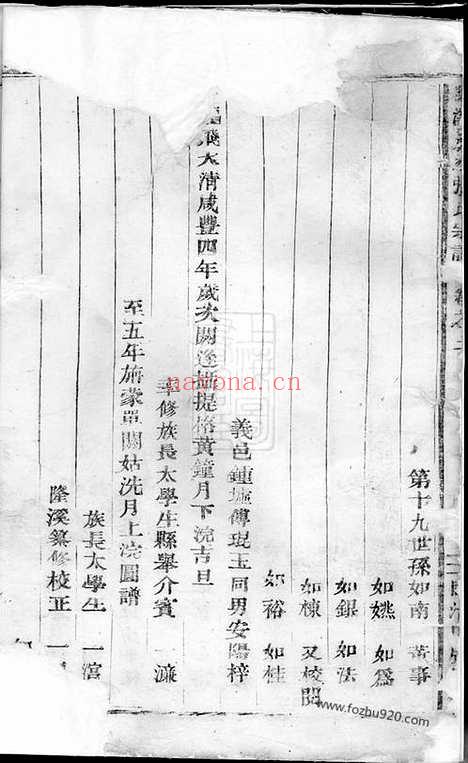 氏宗譜 卷之
第十九世孫如南 董事
如嬿 如爲
如銀 如法
如棟 又校閱
如裕 如桂
義邑鍾塘傅琨玉同男安陽梓
飛大清咸豐四年歲次閼逢攝提格黃鐘月下浣吉旦
修族長太學生縣舉介賓 一濂
至五年旃蒙單閼姑洗月上浣圓譜
族長太學生 一涫
隆溪纂修校正 一
nayona.cn
www.fozhu920.com